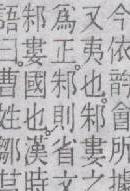 今依韵會所
又夷也。邾婁之
爲正。邾則省文
邾婁國也。漢時
語曰。曹姓鄒